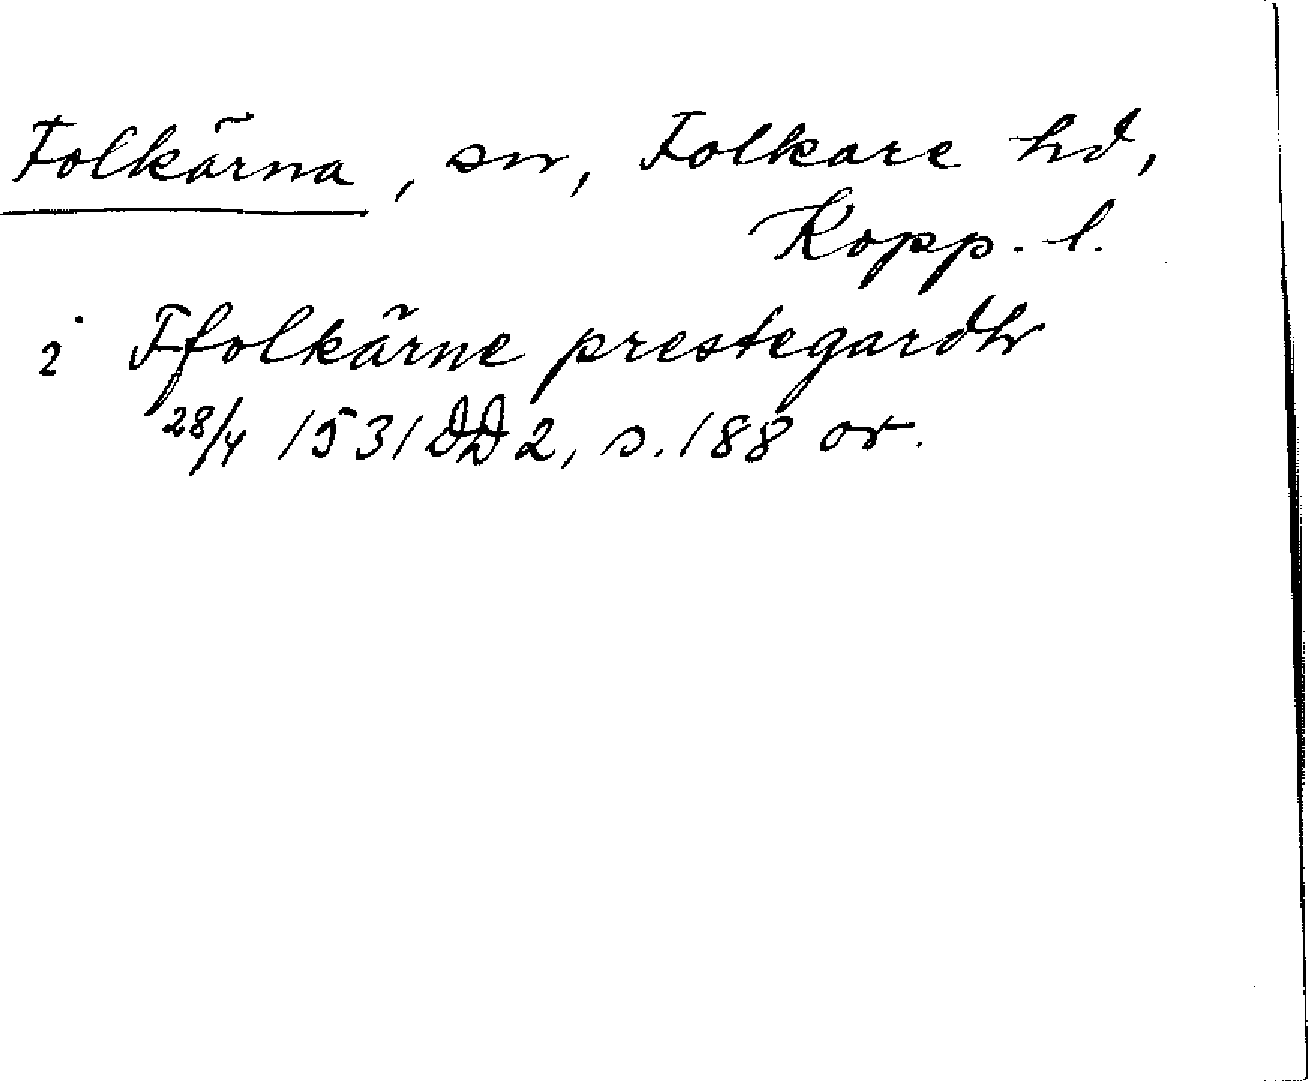 Folkärna, sn, Folkare hd,
Kopp. l.
i Ffolkärne prestegardh
28/4 1531 DD 2, s. 188 or.